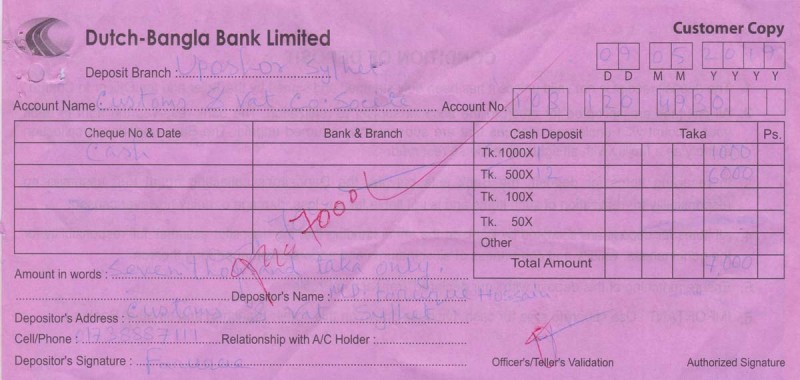 Customer Copy
Dutch-Bangla Bank Limited
07 05 2019
D D M M Y Y Y Y
Deposit Branch : Uposhor Sylhet
Account Name : Customs & Vat Co: Account No. 103 120 4930
Cheque No & Date Bank & Branch Cash Deposit Taka Ps.
Cash Tk. 1000X 1 1000
Tk. 500X 12 6000
Tk. 100X
Tk. 50X
Other
Total Amount 7,000
7000/-
Amount in words : Seven thousand taka only.
Depositor's Name : Hossain
Depositor's Address : Customs & Vat Sylhet
Cell/Phone : Relationship with A/C Holder :
Depositor's Signature :
Officer's/Teller's Validation Authorized Signature